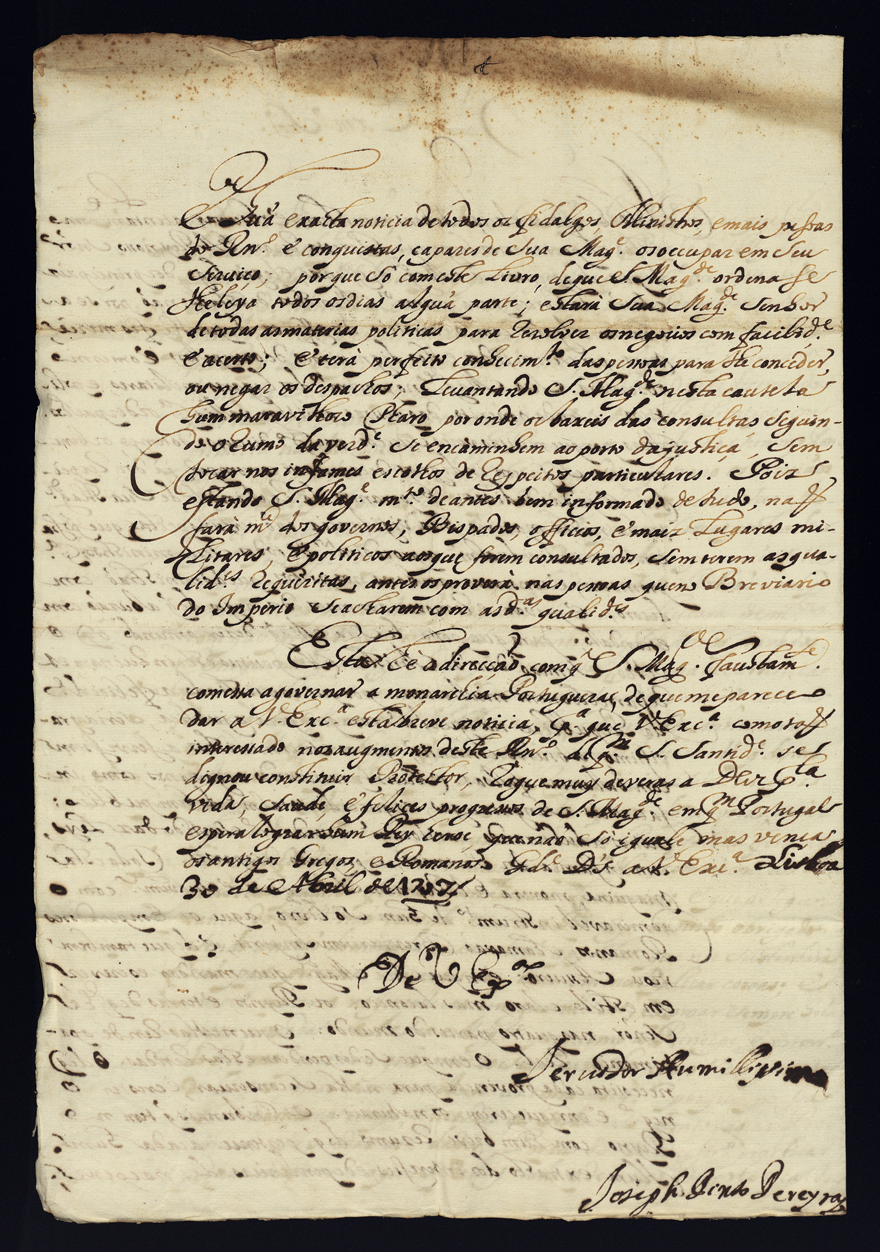 exacta noticia de todos os fidalgos, Ministros, e mais pessoas
do Rn.º e conquistas, capazes de Sua Mag.e os occupar em seu
serviço; porque só com este Livro, de que S. Mag.de ordena se
lhe leya todos os dias algũa parte; estará Sua Mag.de Senhor
de todas as materias politicas para resolver os negocios com facilid.e
e acerto; e terá perfeito conhecim.to das pessoas para lhe conceder,
ou negar os despachos; Levantando S. Mag.e nesta cautela
hum maravilhozo Pharo por onde os baxeis das consultas seguin-
do o rumo da verd.e se encaminhem ao porto da justiça, sem
tocar nos infames escolhos de respeitos particulares. Pois
estando S. Mag.e m.to de antes bem informado de tudo, naõ
fará m.ce dos governos, Bispados, officios, e mais Lugares mi-
litares, e politicos aos que forem consultados, sem terem as qua-
lid.es requizitas, antes os proverá nas pessoas que no Breviario
do Imperio se acharem com as d.as qualid.es
Esta he a direcçaõ com q̃ S. Mag.de faustam.te
comessa a governar a monarchia Portugueza, de que me pareceo
dar a V. Exc.a esta breve noticia, p.a que V. Exc.a como taõ
interessado nos augmentos deste Rn.º de q.m S. Santid.e se
dignou constituir Protector, rogue muy deveras a Deos p.la
vida, saude, e felices progressos de S. Mag.de em q.m Portugal
espera lograr hum Rey heroe, que naõ só iguale mas vença
os antigos Gregos, e Romanos. G.de D.s a V. Exc.a Lisboa
30 de Abril de 1707
De V. Ex.a
Servidor Humillissimo
Joseph Pinto Pereyra